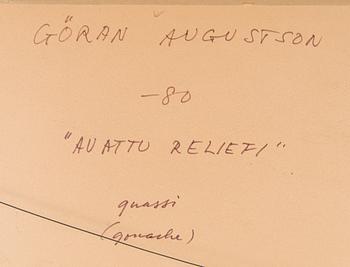 GÖRAN AUGUSTSON
-80
"AVATTU RELIEFI"
guassi
(gouache)